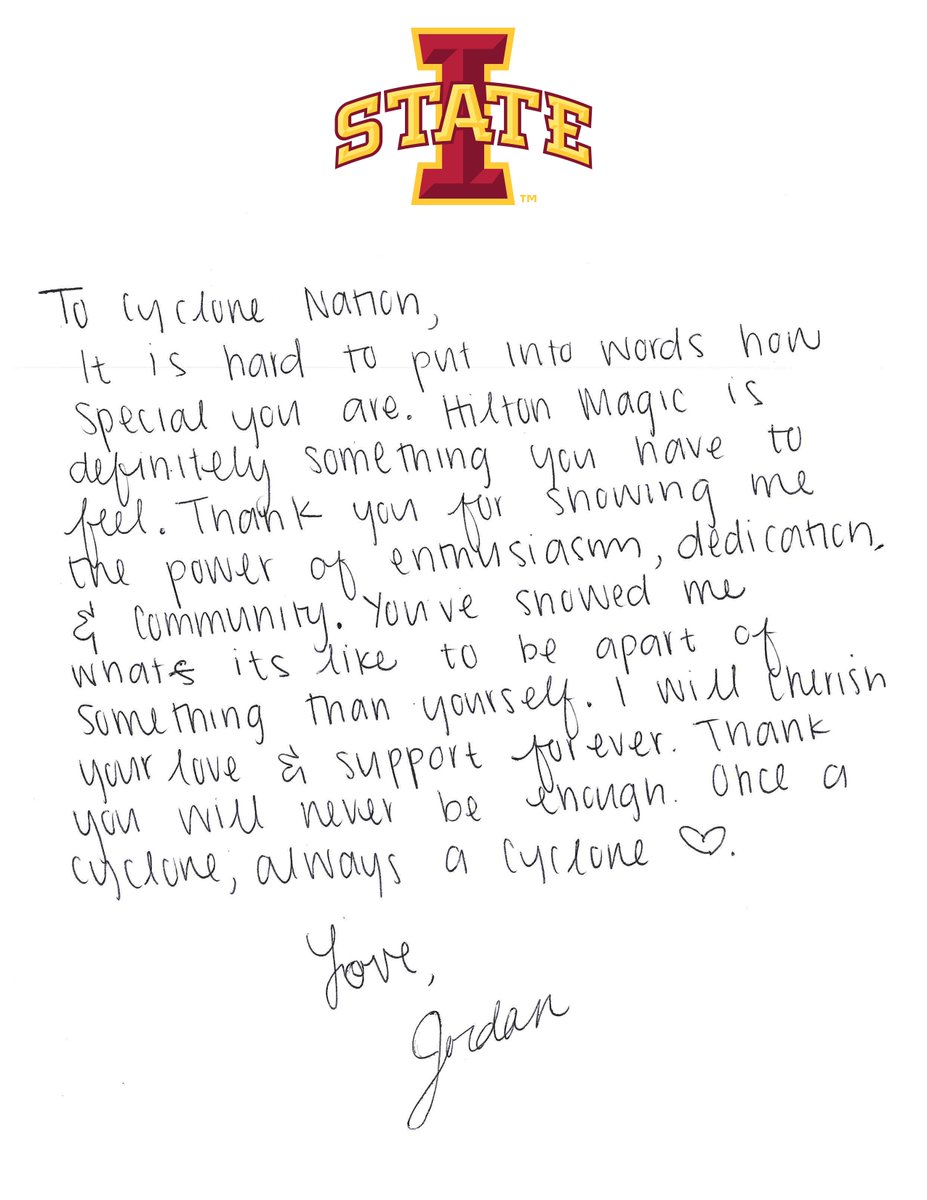 I
STATE
TM
To Cyclone Nation,
It is hard to put into words how
special you are. Hilton Magic is
definitely something you have to
feel. Thank you for showing me
the power of enthusiasm, dedication,
& community. You've showed me
whats its like to be apart of
something than yourself. I will cherish
your love & support forever. Thank
you will never be enough. Once a
cyclone, always a cyclone ♡.
Love,
Jordan